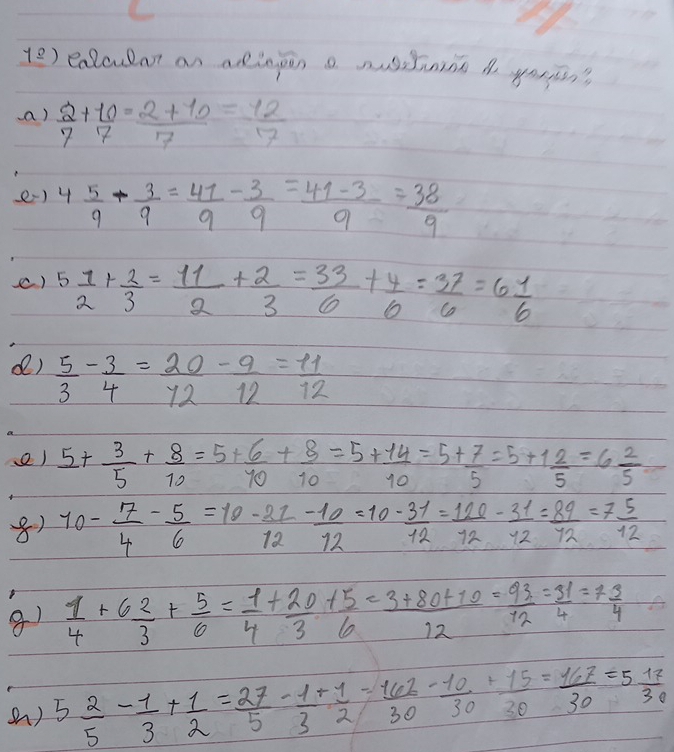 1º) Calcular as adições e subtrações de frações:
a) 2/7 + 10/7 = 2+10/7 = 12/7
b) 4 5/9 - 3/9 = 41/9 - 3/9 = 41-3/9 = 38/9
c) 5 1/2 + 2/3 = 11/2 + 2/3 = 33/6 + 4/6 = 37/6 = 6 1/6
d) 5/3 - 3/4 = 20/12 - 9/12 = 11/12
e) 5 + 3/5 + 8/10 = 5 + 6/10 + 8/10 = 5 + 14/10 = 5 + 7/5 = 5 + 1 2/5 = 6 2/5
f) 10 - 7/4 - 5/6 = 10 - 21/12 - 10/12 = 10 - 31/12 = 120/12 - 31/12 = 89/12 = 7 5/12
g) 1/4 + 6 2/3 + 5/6 = 1/4 + 20/3 + 5/6 = 3+80+10/12 = 93/12 = 31/4 = 7 3/4
h) 5 2/5 - 1/3 + 1/2 = 27/5 - 1/3 + 1/2 = 162/30 - 10/30 + 15/30 = 167/30 = 5 17/30